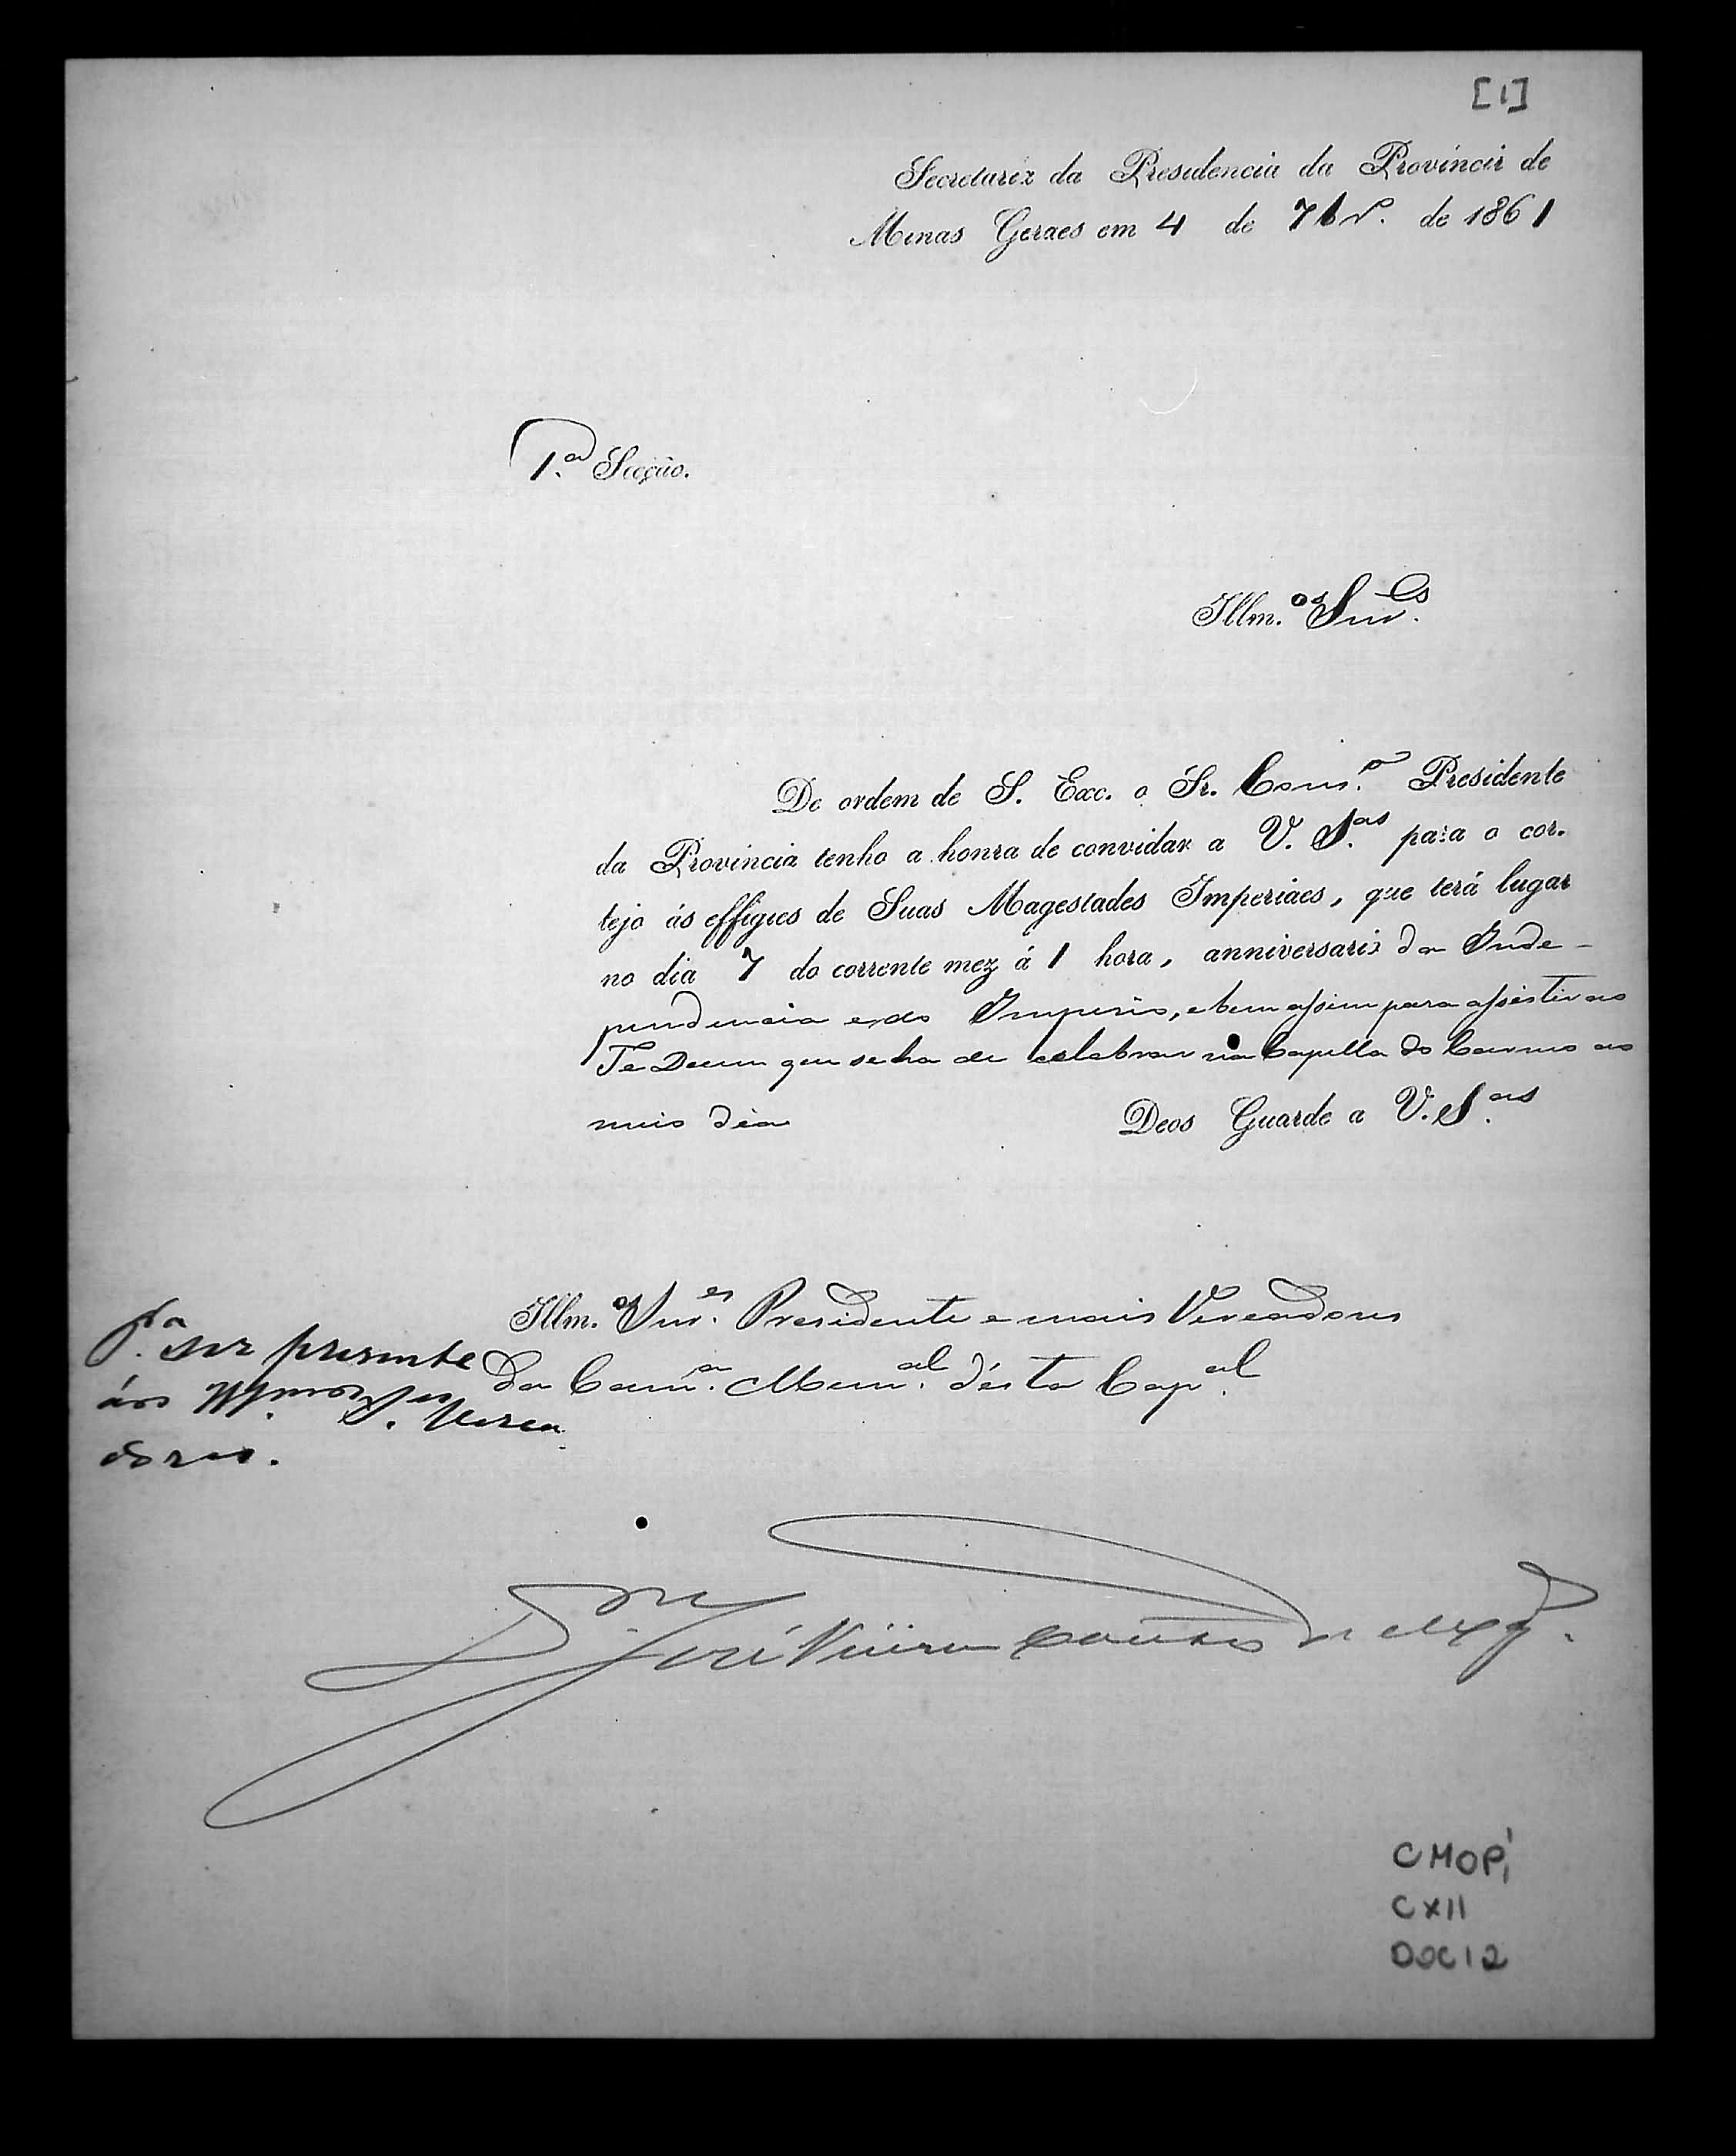 [1]
Secretaria da Presidencia da Provincia de
Minas Geraes em 4 de 7br.º de 1861
1.ª Secção.
Illm.os Snr.es
De ordem de S. Exc. o Sr. Cons.º Presidente
da Provincia tenho a honra de convidar a V. S.as para o cor-
tejo ás effigies de Suas Magestades Imperiaes, que terá lugar
no dia 7 do corrente mez á 1 hora, anniversario da Inde-
pendencia e do Imperio, e bem assim para assistir ao
Te Deum que se ha de celebrar na Capella do Carmo ao
meio dia
Deos Guarde a V. S.as
Illm.os Snr.es Presidente e mais Vereadores
da Cam.ª Mun.al désta Cap.al
P.ª ser presente
áos S.es Verea
dores.
José Vieira Couto de
CMOPi
CXII
DOC 12